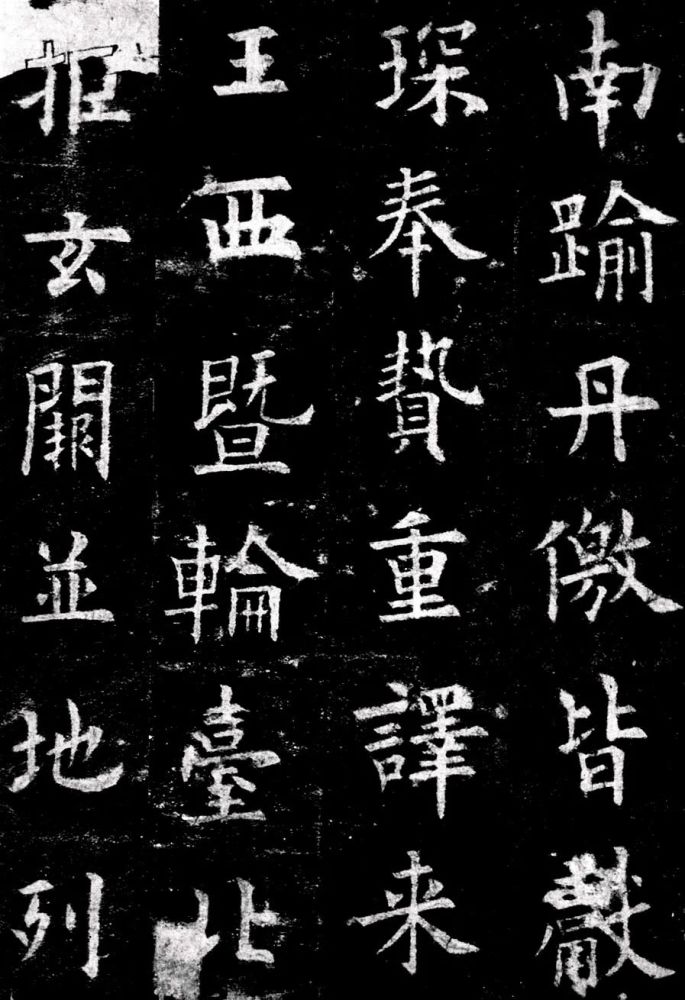 南踰丹儌皆獻
琛奉贄重譯来
王西曁輪臺北
拒玄闕並地列